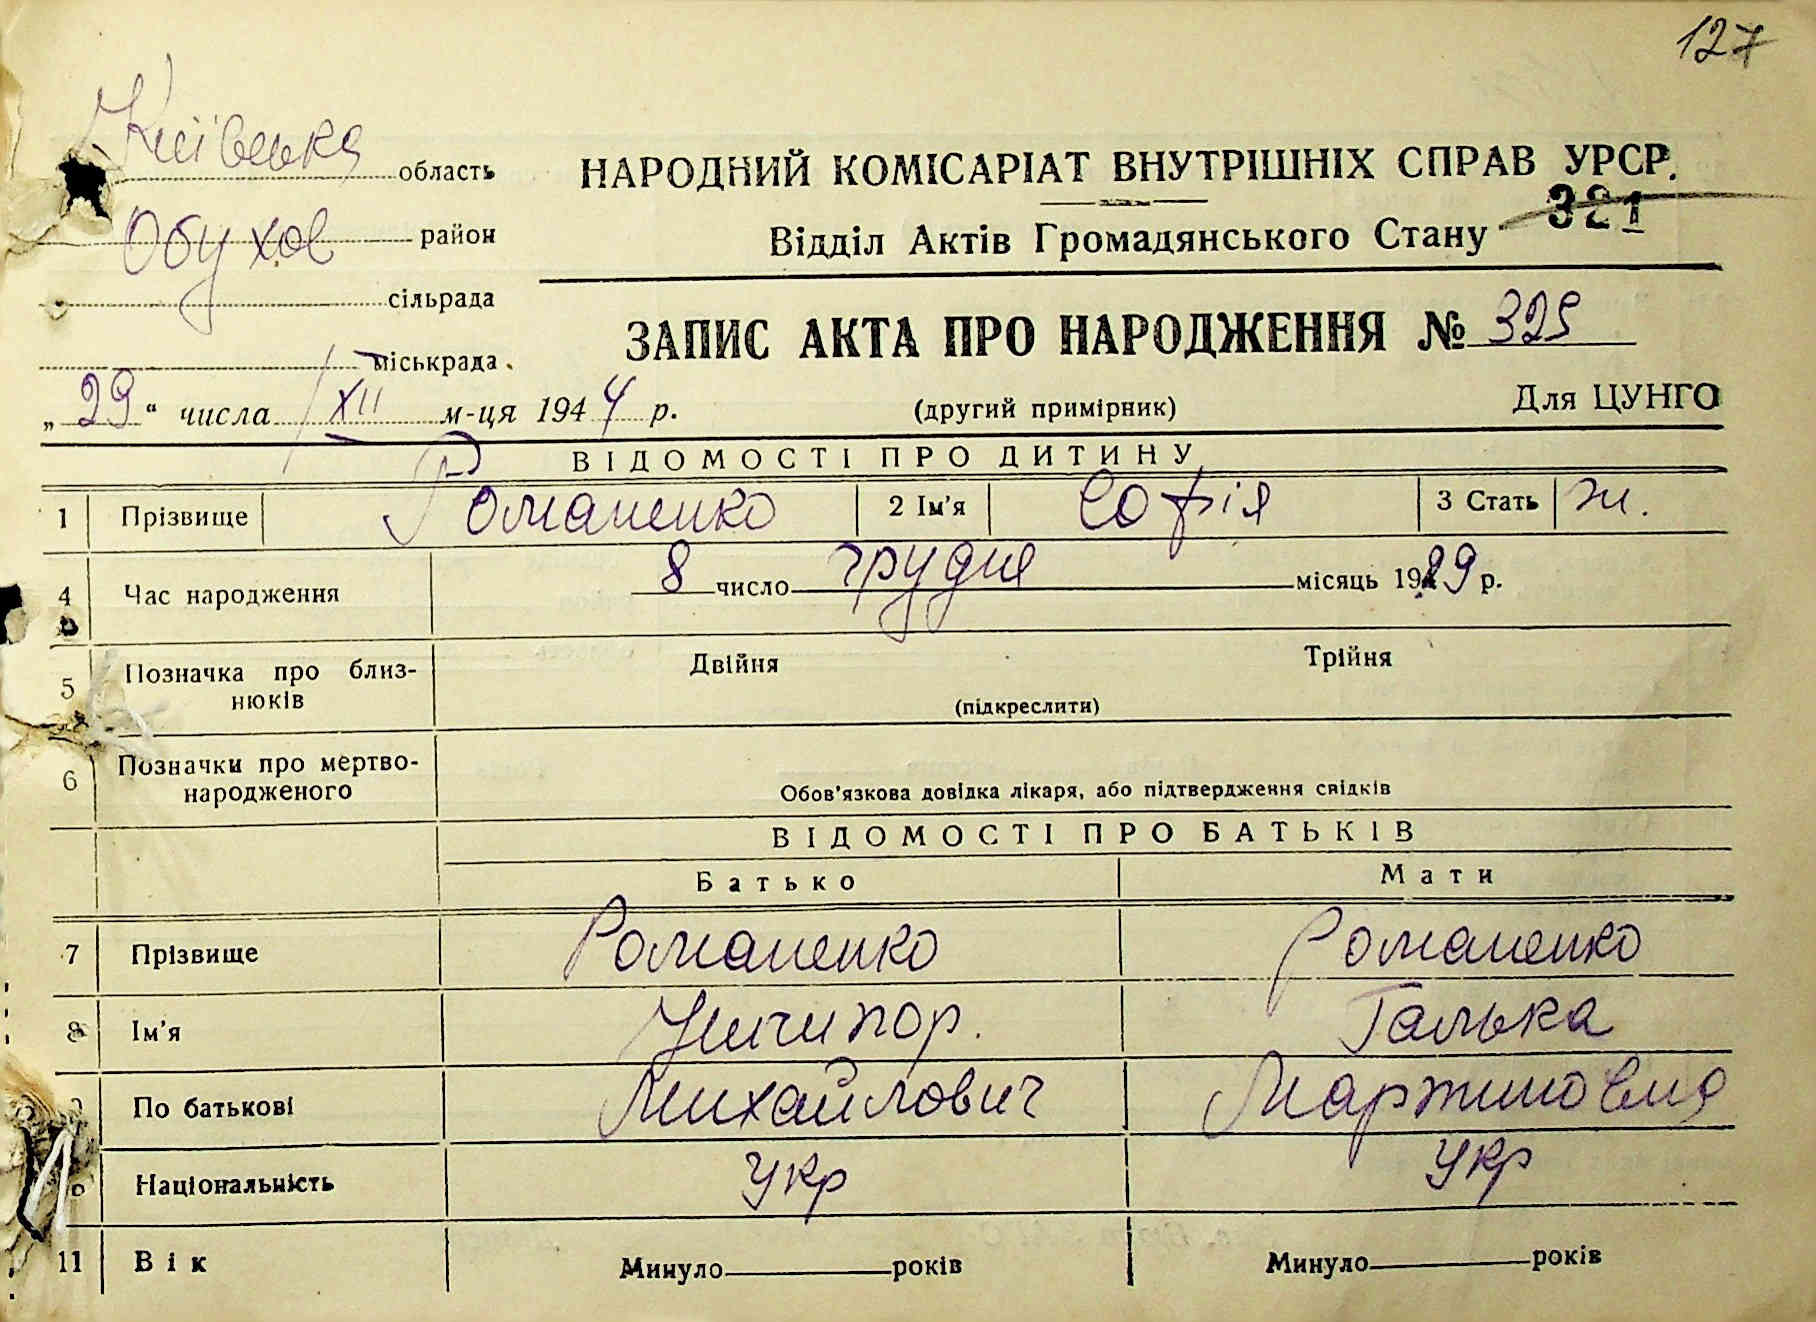 127
Київська область
Обухов район
сільрада
міськрада.
„29“ числа XII м-ця 1944 р.
НАРОДНИЙ КОМІСАРІАТ ВНУТРІШНІХ СПРАВ УРСР.
Відділ Актів Громадянського Стану
321
ЗАПИС АКТА ПРО НАРОДЖЕННЯ № 325
(другий примірник)
Для ЦУНГО
ВІДОМОСТІ ПРО ДИТИНУ
1 Прізвище Романенко 2 Ім'я Софія 3 Стать ж.
4 Час народження 8 число грудня місяць 1929 р.
5 Позначка про близ-
нюків
Двійня Трійня
(підкреслити)
6 Позначки про мертво-
народженого
Обов'язкова довідка лікаря, або підтвердження свідків
ВІДОМОСТІ ПРО БАТЬКІВ
Батько Мати
7 Прізвище Романенко Романенко
8 Ім'я Ничипор. Галька
По батькові Михайлович Мартиновна
Національність Укр Укр
11 Вік Минуло років Минуло років